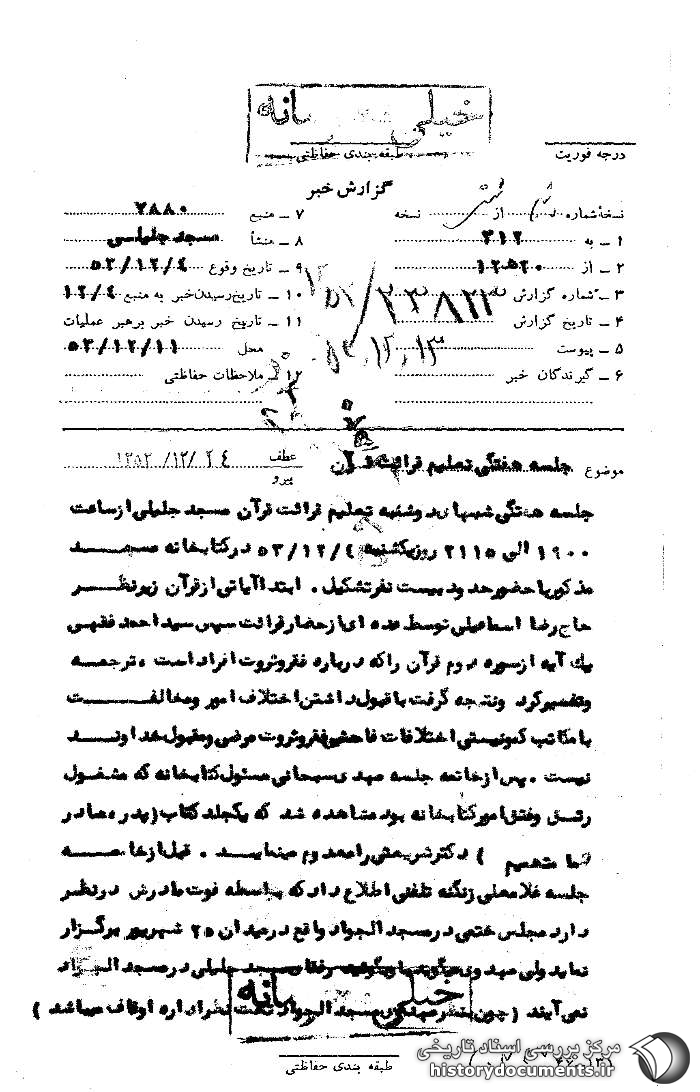 خیلی محرمانه
طبقه بندی حفاظتی
درجه فوریت
گزارش خبر
نسخهٔ شماره از نسخه
۱ – به ۳۱۲
۲ – از ۲۰ﻫ۱۲
۳ – شماره گزارش
۴ – تاریخ گزارش
۵ – پیوست
۶ – گیرندگان خبر
۷ – منبع ۲۸۸۰
۸ – منشأ مسجد جلیلی
۹ – تاریخ وقوع ۵۳/۱۲/۴
۱۰ – تاریخ رسیدن خبر به منبع ۱۲/۴
۱۱ – تاریخ رسیدن خبر برهبر عملیات
محل ۵۳/۱۲/۱۱
۱۲ – ملاحظات حفاظتی
موضوع جلسه هفتگی تعلیم قرائت قرآن
عطف
پیرو
جلسه هفتگی شبهای دوشنبه تعلیم قرائت قرآن مسجد جلیلی از ساعت
۱۹۰۰ الی ۲۱۱۵ روز یکشنبه ۵۳/۱۲/۴ در کتابخانه مسجد
مذکور با حضور حدود بیست نفر تشکیل . ابتدا آیاتی از قرآن زیر نظر
حاج رضا اسماعیلی توسط عده ای از حضار قرائت سپس سید احمد فقهی
یك آیه از سوره دوم قرآن را که درباره فقر و ثروت افراد است ، ترجمه
و تفسیر کرد و نتیجه گرفت با قبول داشتن اختلاف امور و مخالفت
با مکاتب کمونیستی اختلافات فاحش و فقر و ثروت مرضی و مقبول خداوند
نیست . پس از خاتمه جلسه مهدی سبحانی مسئول کتابخانه که مشغول
رتق و فتق امور کتابخانه بود مشاهده شد که یکجلد کتاب (پدر ، مادر
ما متهمیم ) دکتر شریعتی را معدوم مینماید . قبل از خاتمه
جلسه غلامعلی زنگنه تلفنی اطلاع داد که بواسطه فوت مادرش در نظر
دارد مجلس ختمی در مسجد الجواد واقع در میدان ۲۵ شهریور برگزار
نماید ولی مهدوی میگوید رفقا مسجد جلیلی در مسجد الجواد
نمی آیند (چون مسجد الجواد تحت نظر اداره اوقاف میباشد )
خیلی محرمانه
طبقه بندی حفاظتی
مرکز بررسی اسناد تاریخی
historydocuments.ir